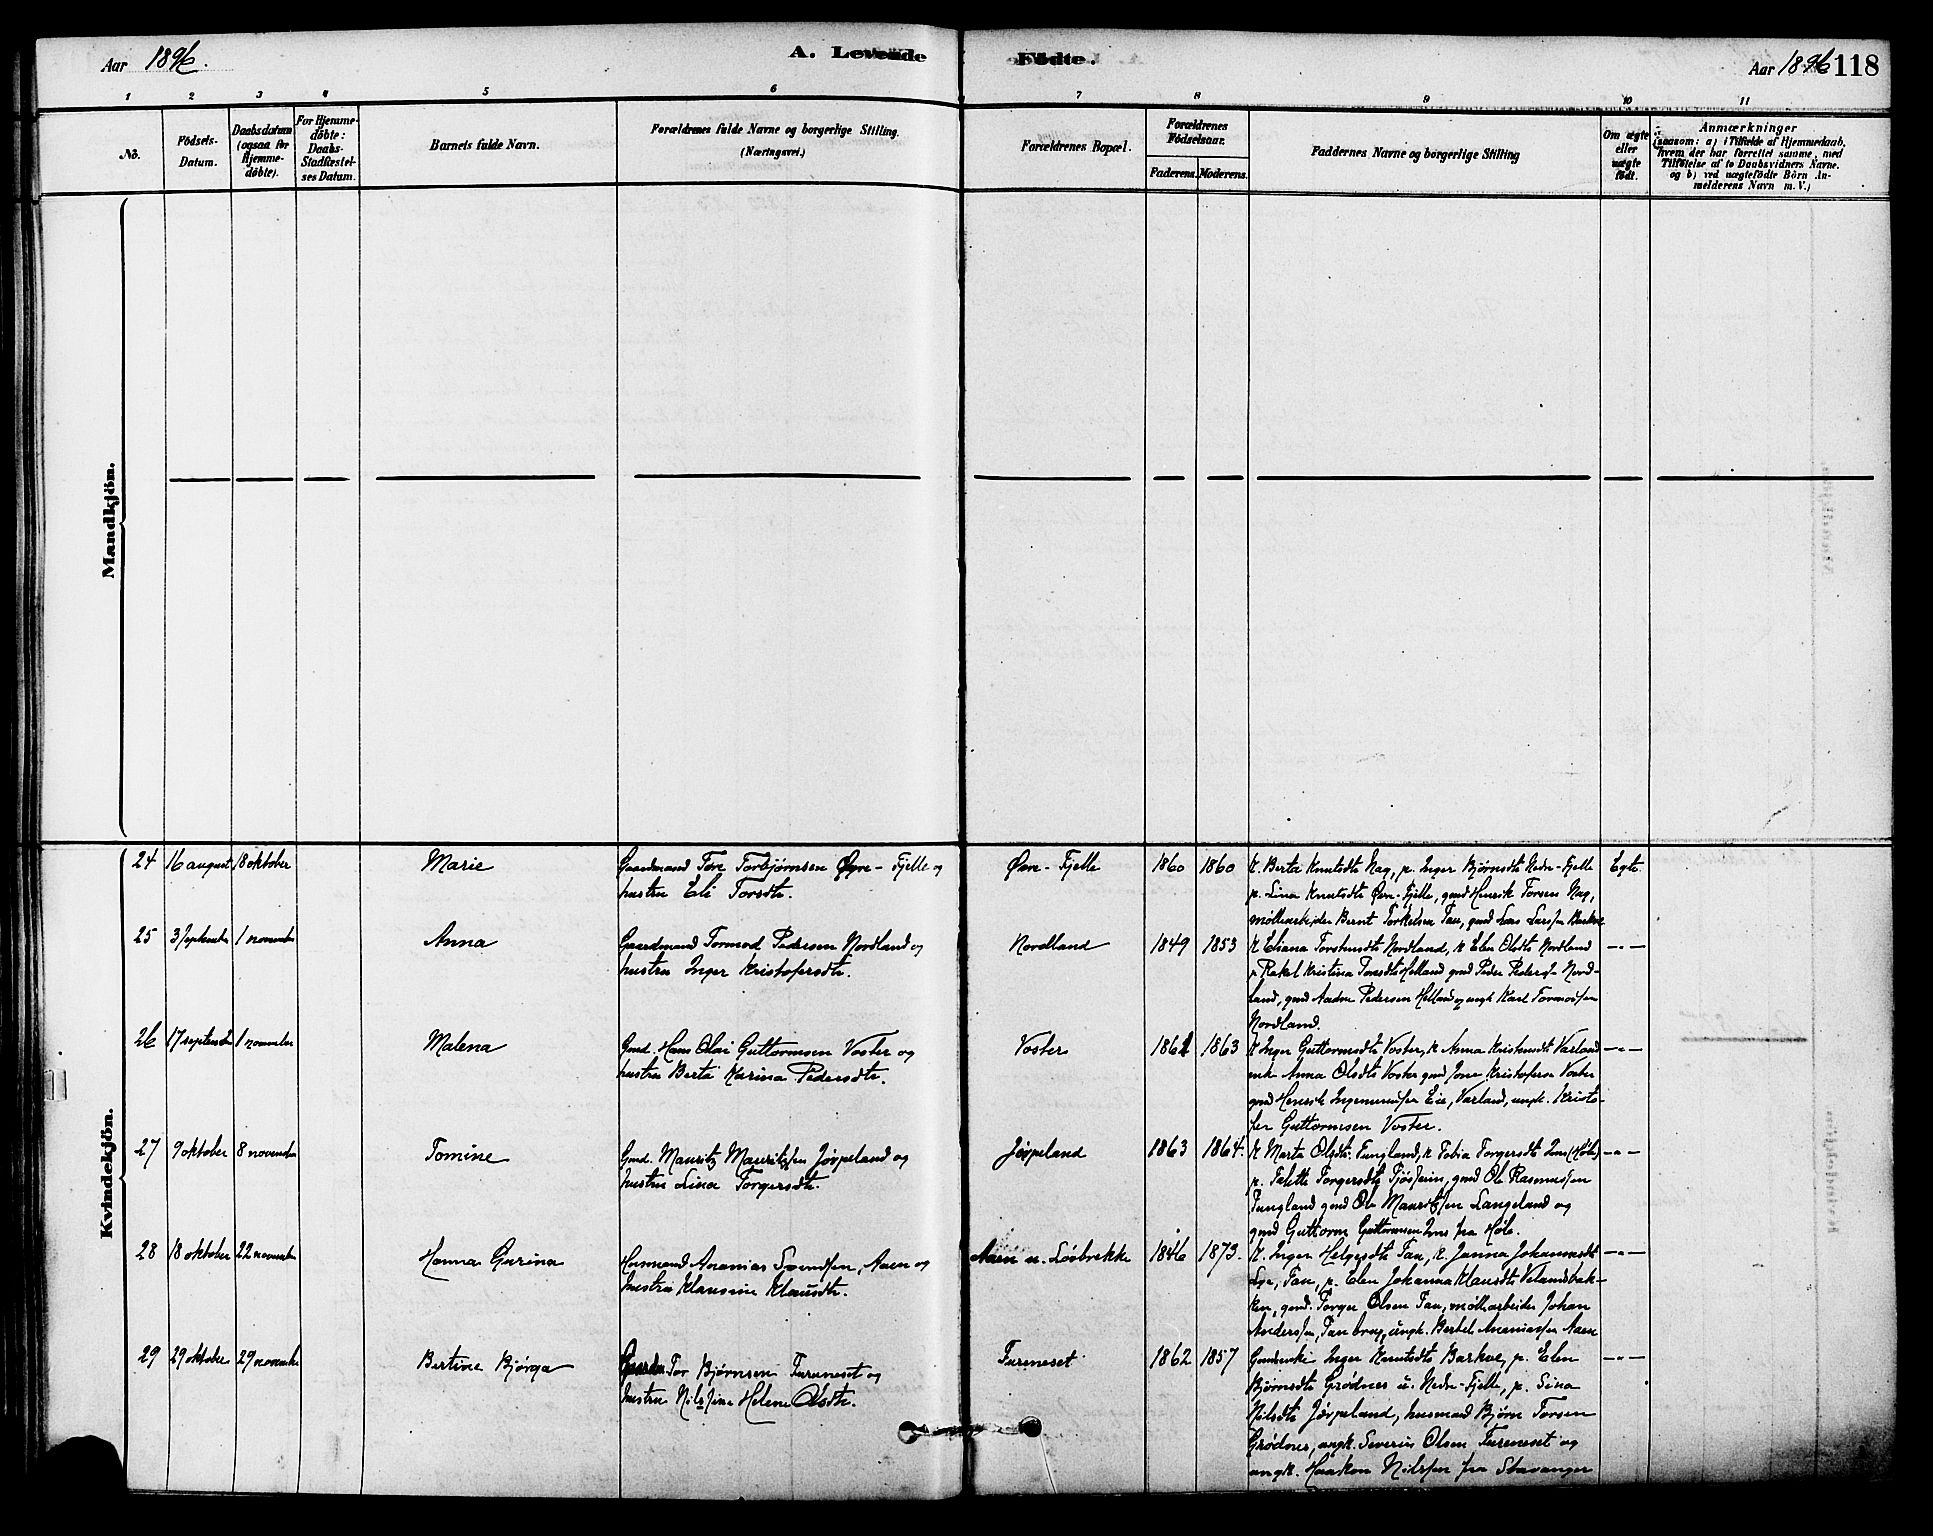 Aar 1896.
A. Levende
Fødte.
Aar 1896
118
1 2 3 4 5 6 7 8 9 10 11
No.
Födsels-
Datum.
Daabsdatum
(ogsaa for
Hjemme-
döbte).
For Hjemme-
döbte:
Daabs-
Stadfæstel-
ses Datum.
Barnets fulde Navn.
Forældrenes fulde Navne og borgerlige Stilling.
(Næringsvei.)
Forældrenes Bopæl.
Forældrenes
Födselsaar.
Faderens. Moderens.
Faddernes Navne og borgerlige Stilling
Om ægte
eller
uægte
født.
Anmærkninger
(saasom: a) i Tilfælde af Hjemmedaab,
hvem der har forrettet samme, med
Tilföielse af to Daabsvidners Navne.
og b) ved uægtefödte Börn An-
melderens Navn m. V.)
Mandkjön.
Kvindekjön.
24 16 august 18 oktober
Marie
Gaardmand Tore Torbjørnsen Øvre-Fjelle og
hustru Eli Torsdt.
Øvre-Fjelle
1860 1860
K. Berta Knutsdt Nag, p. Inger Bjørnsdt Nedre-Fjelle
p. Lina Knutsdt Øvre-Fjelle, gmd Henrik Torsen Nag,
møllearbeider Bernt Torkelsen Tau, gmd Lars Larssen Barkve
Egte.
25 3 september 1 november
Anna
Gaardmand Tormod Pedersen Nordland og
hustru Inger Kristofersdt.
Nordland
1849 1853
K Eliana Nordland, K Elen Olsdt Nordland
p Rakel Kristina Helland gmd Peder Pedersen Nord-
land, gmd Pedersen Helland og ungk Karl Tormodsen
Nordland.
— " —
26 17 september 1 november
Malena
Gmd. Hans Olai Guttormsen Voster og
hustru Berta Karina Pedersdt.
Voster
1861 1863
K Inger Guttormsdt Voster, K Anna Varland
enk Anna Olsdt Voster gmd Jone Kristofersen Voster
gmd Henrik Eie, Varland, ungk. Kristo-
fer Guttormsen Voster.
— " —
27 9 oktober 8 november
Tomine
Gmd. Mauritz Mauritzsen Jørpeland og
hustru Lina Torgersdt.
Jørpeland
1863 1864.
K Marta Olsdt. Tungland, K Tobia Torgersdt (Høle)
p. Talette Torgersdt gmd Ole Rasmussen
Tungland gmd Ole Mauritzsen Langeland og
gmd Guttorm Guttormsen fra Høle.
— " —
28 18 oktober 22 november
Hanna Gurina
Husmand Ananias Svendsen, Aaen og
hustru Klausine Klausdt.
Aaen u. Løvbrekke
1846 1873.
K. Inger Helgesdt Tau, K. Janna Johannesdt
Tau, p. Elen Johanna Klausdt Velandsbak-
ken, gmd. Torger Olsen Tau, møllearbeider Johan
Anderssen, Tau brug, ungk. Bertel Ananiassen Aaen
— " —
29 29 oktober 29 november
Bertine Bjørga
Tor Bjørnsen Tureneset og
hustru Helene Olsdt.
Tureneset
1862 1857
Inger Knutsdt Barkve, p. Elen
Bjørnsdt Grødnes u. Nedre-Fjelle, p. Sina
Nilsdt Jørpeland, husmand Bjørn Torsen
Grødnes, ungk. Severin Olsen Tureneset og
ungk. Haakon Nilssen fra Stavanger
— " —